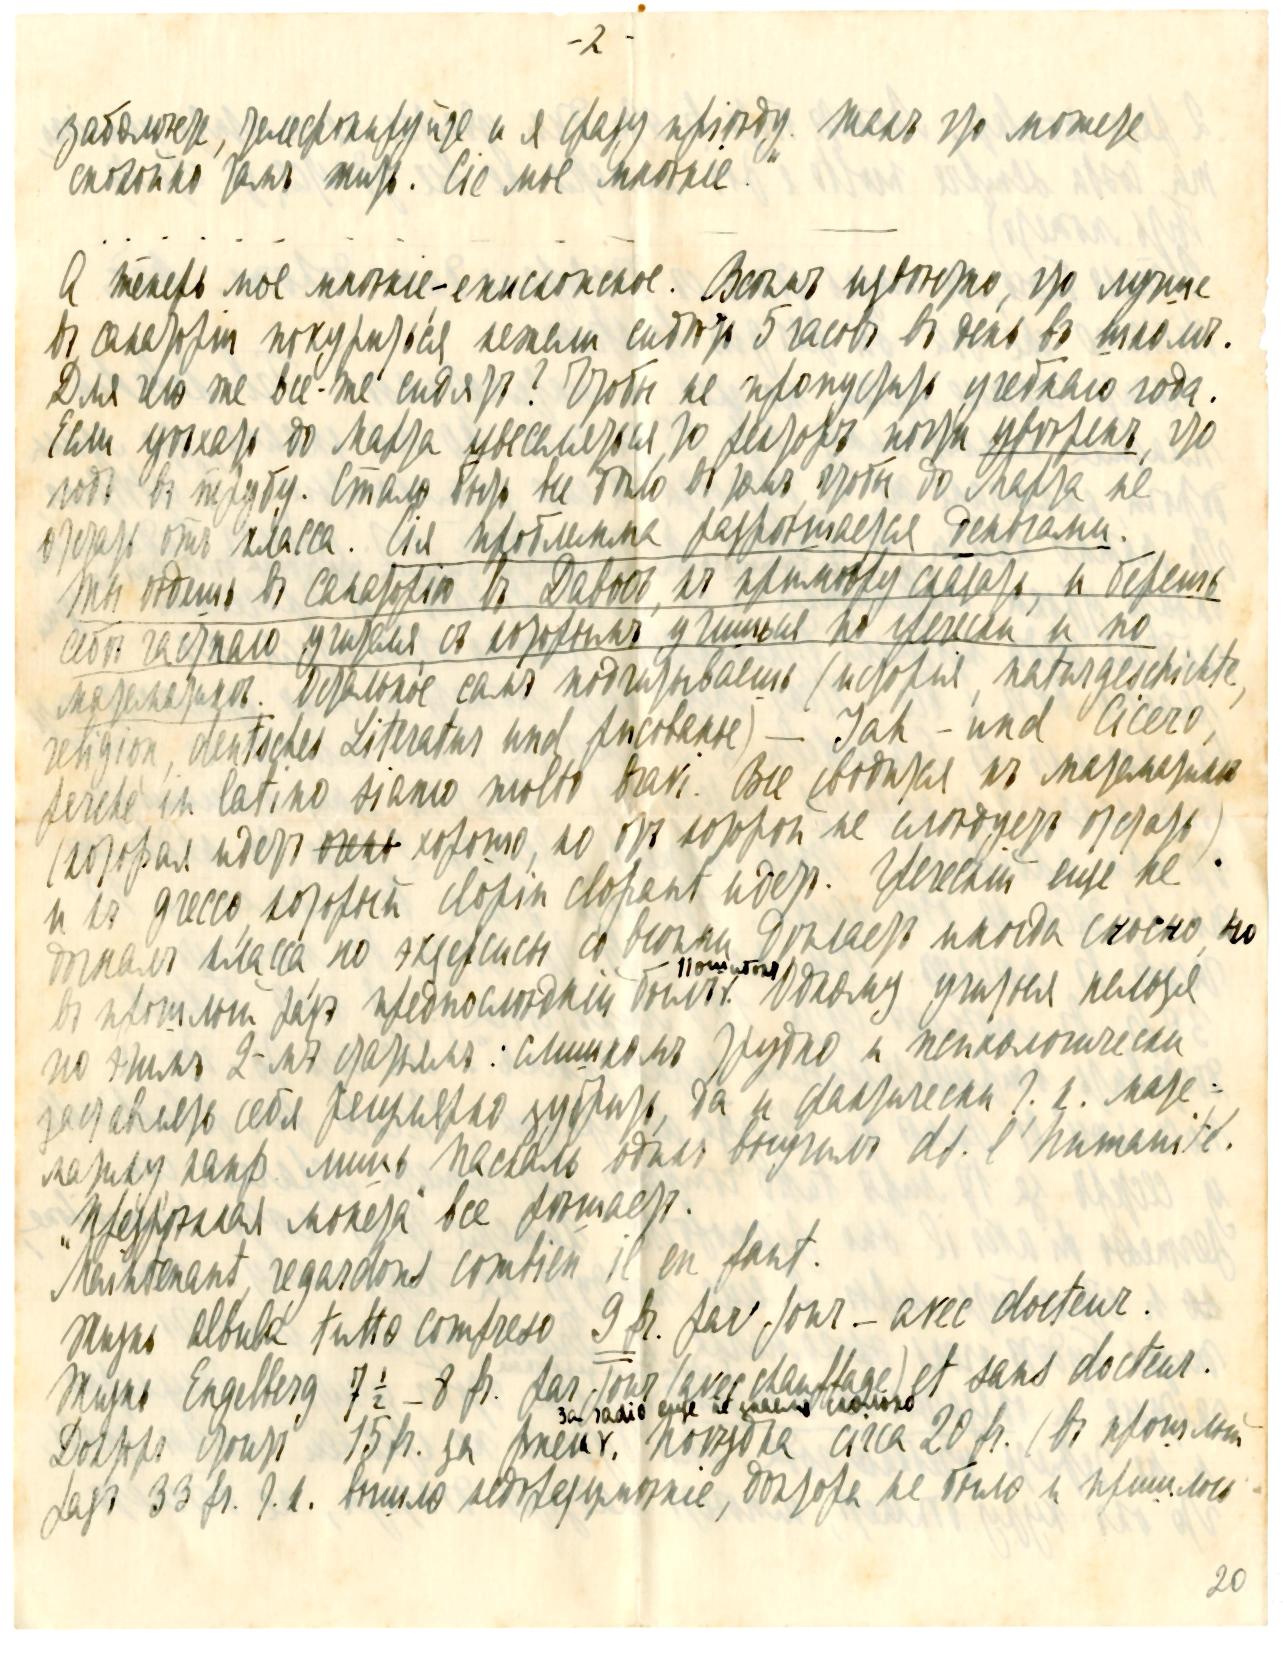 -2-
заболѣете, телефонируйте и я сразу пріѣду. Такъ что можете
спокойно тамъ жить. Сіе мое мнѣніе."
А теперь моё мнѣніе-епископское. Всѣмъ извѣстно, что лучше
въ санаторіи покуриться нежели сидѣть 5 часовъ въ день въ школѣ.
Для чего же все-же сидятъ? Чтобы не пропустить учебнаго года.
Если уѣхать до Марта увеселяться, то ректоръ почти увѣренъ, что
годъ въ трубу. Стало быть все дѣло въ томъ, чтобы до Марта не
отстать отъ класса. Сія проблемма разрѣшается деньгами.
Ты ѣдешь въ санаторію въ Давосъ, къ примѣру сказать, и берешь
себѣ частнаго учителя, съ которымъ учишься по гречески и по
математикѣ. Остальное самъ подчитываешь (исторія, naturgeschichte,
religion, deutsches Literatur und рисованье) — Jah - und Cicero,
perché in latino siamo molto bravi. Все сводится къ математикѣ
(которая идетъ очень хорошо, но отъ которой не слѣдуетъ отстать)
и къ greco, который clopin clopant идетъ. Греческій еще не
догналъ класса но экзерсисы со всѣми дѣлаетъ иногда сносно, но
въ прошлый разъ предпослѣдній былъ. Одному учиться нельзя
по этимъ 2-мъ статьямъ: слишкомъ трудно и психологически
заставлять себя регулярно зубрить, да и фактически т. к. мате-
матику напр. лишь Паскаль одинъ выучилъ ds. l'humanité.
"Презрѣнная монета" все рѣшаетъ.
Maintenant, regardons combien il en faut.
Жизнь Albula tutto compreso 9 fr. par jour — avec docteur.
Жизнь Engelberg 7 1/2 — 8 fr. par jour (avec chauffage) et sans docteur.
за radio еще не знаемъ сколько
Докторъ стоитъ 15 fr. за pneum. Поѣздка circa 20 fr. (въ прошлый
разъ 33 fr. т. к. вышло недоразумѣніе, доктора не было и пришлось
20